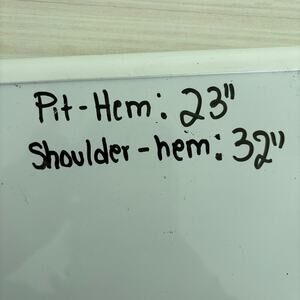 Pit-Hem: 23"
Shoulder-hem: 32"